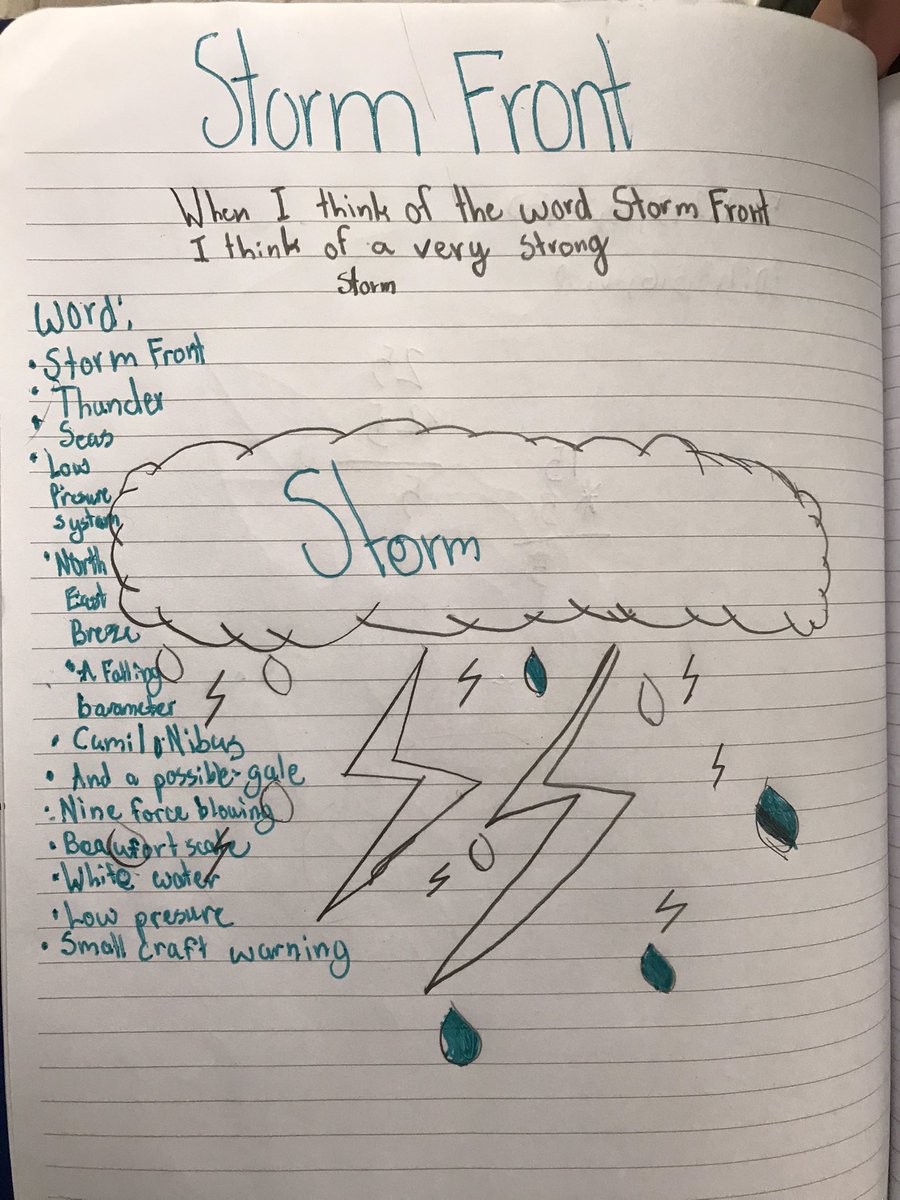 Storm Front
When I think of the word Storm Front
I think of a very strong
Storm
Word:
• Storm Front
• Thunder
• Seas
• Low
Presure
system
• North
East
Breze
• A Falling
barameter
• Cumilo Nibus
• And a possible gale
• Nine force blowing
• Beaufort scale
• White water
• Low presure
• Small craft warning
Storm